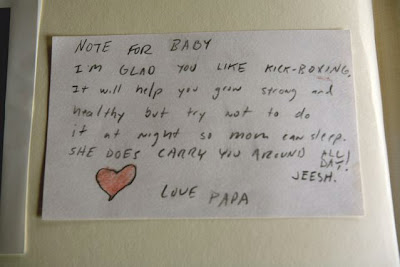 NOTE FOR BABY
I'M GLAD YOU LIKE KICK-BOXING.
It will help you grow strong and
healthy but try not to do
it at night so mom can sleep.
SHE DOES CARRY YOU AROUND ALL DAY!
JEESH.
LOVE PAPA